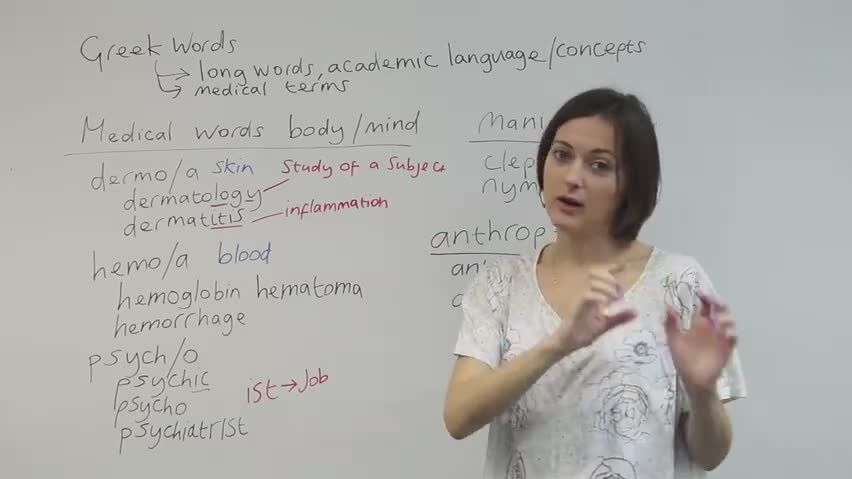 Greek Words
long words, academic language/concepts
medical terms
Medical words body/mind
dermo/a skin Study of a Subject
dermatology
dermatitis inflammation
hemo/a blood
hemoglobin hematoma
hemorrhage
psych/o
psychic
psycho ist → Job
psychiatrist
Mani
clep
nym
anthrop